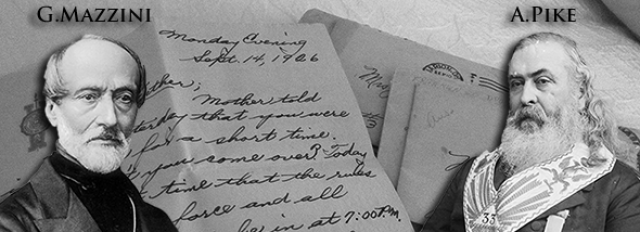 G.MAZZINI
A.PIKE
Monday Evening
Sept. 14, 1926
Mother told
that you were
for a short time.
you some over? Today
time that the rules
force and all
be in at 7:00 P.M.
33